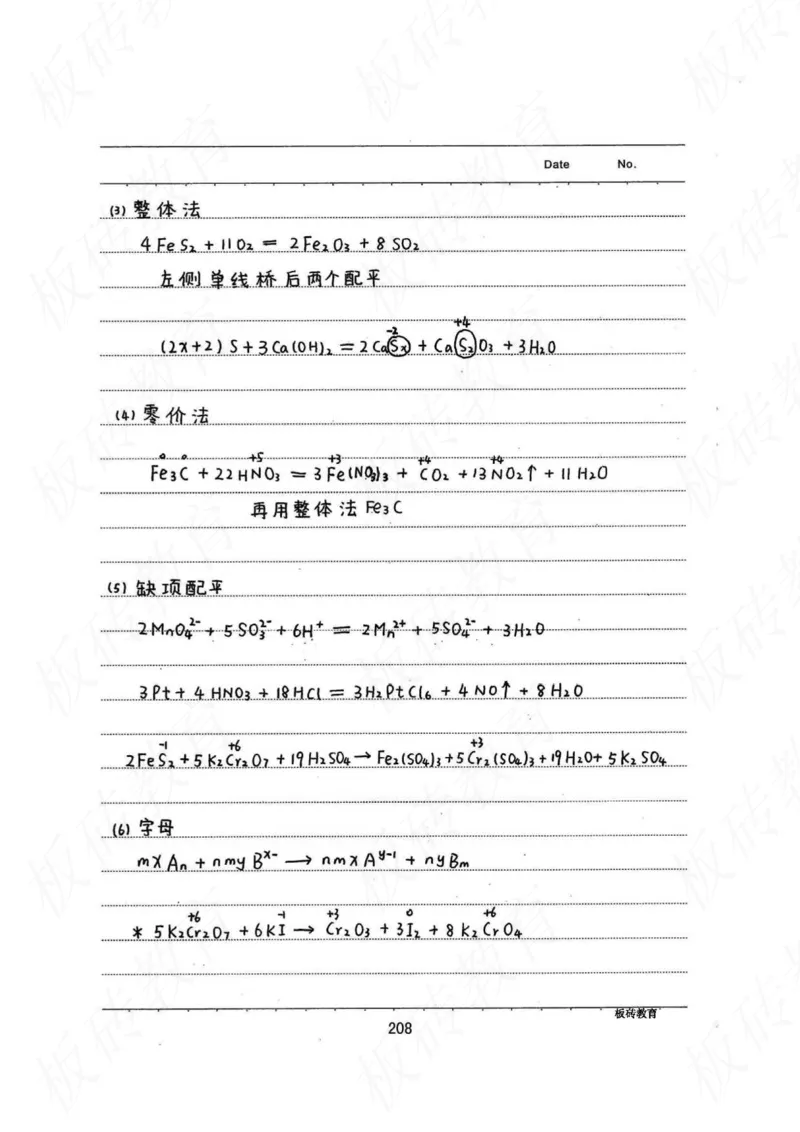 Date No.
(3) 整体法
4FeS₂ + 11O₂ = 2Fe₂O₃ + 8SO₂
左侧单线桥后两个配平
-2 +4
(2x+2) S + 3Ca(OH)₂ = 2CaSₓ + CaS₂O₃ + 3H₂O
(4) 零价法
0 0 +5 +3 +4 +4
Fe₃C + 22HNO₃ = 3Fe(NO₃)₃ + CO₂ + 13NO₂↑ + 11H₂O
再用整体法 Fe₃C
(5) 缺项配平
2MnO₄²⁻ + 5SO₃²⁻ + 6H⁺ = 2Mn²⁺ + 5SO₄²⁻ + 3H₂O
3Pt + 4HNO₃ + 18HCl = 3H₂PtCl₆ + 4NO↑ + 8H₂O
-1 +6 +3
2FeS₂ + 5K₂Cr₂O₇ + 19H₂SO₄ → Fe₂(SO₄)₃ + 5Cr₂(SO₄)₃ + 19H₂O + 5K₂SO₄
(6) 字母
mxAₙ + nmyBˣ⁻ → nmxAʸ⁻¹ + nyBₘ
+6 -1 +3 0 +6
* 5K₂Cr₂O₇ + 6KI → Cr₂O₃ + 3I₂ + 8K₂CrO₄
板砖教育
208